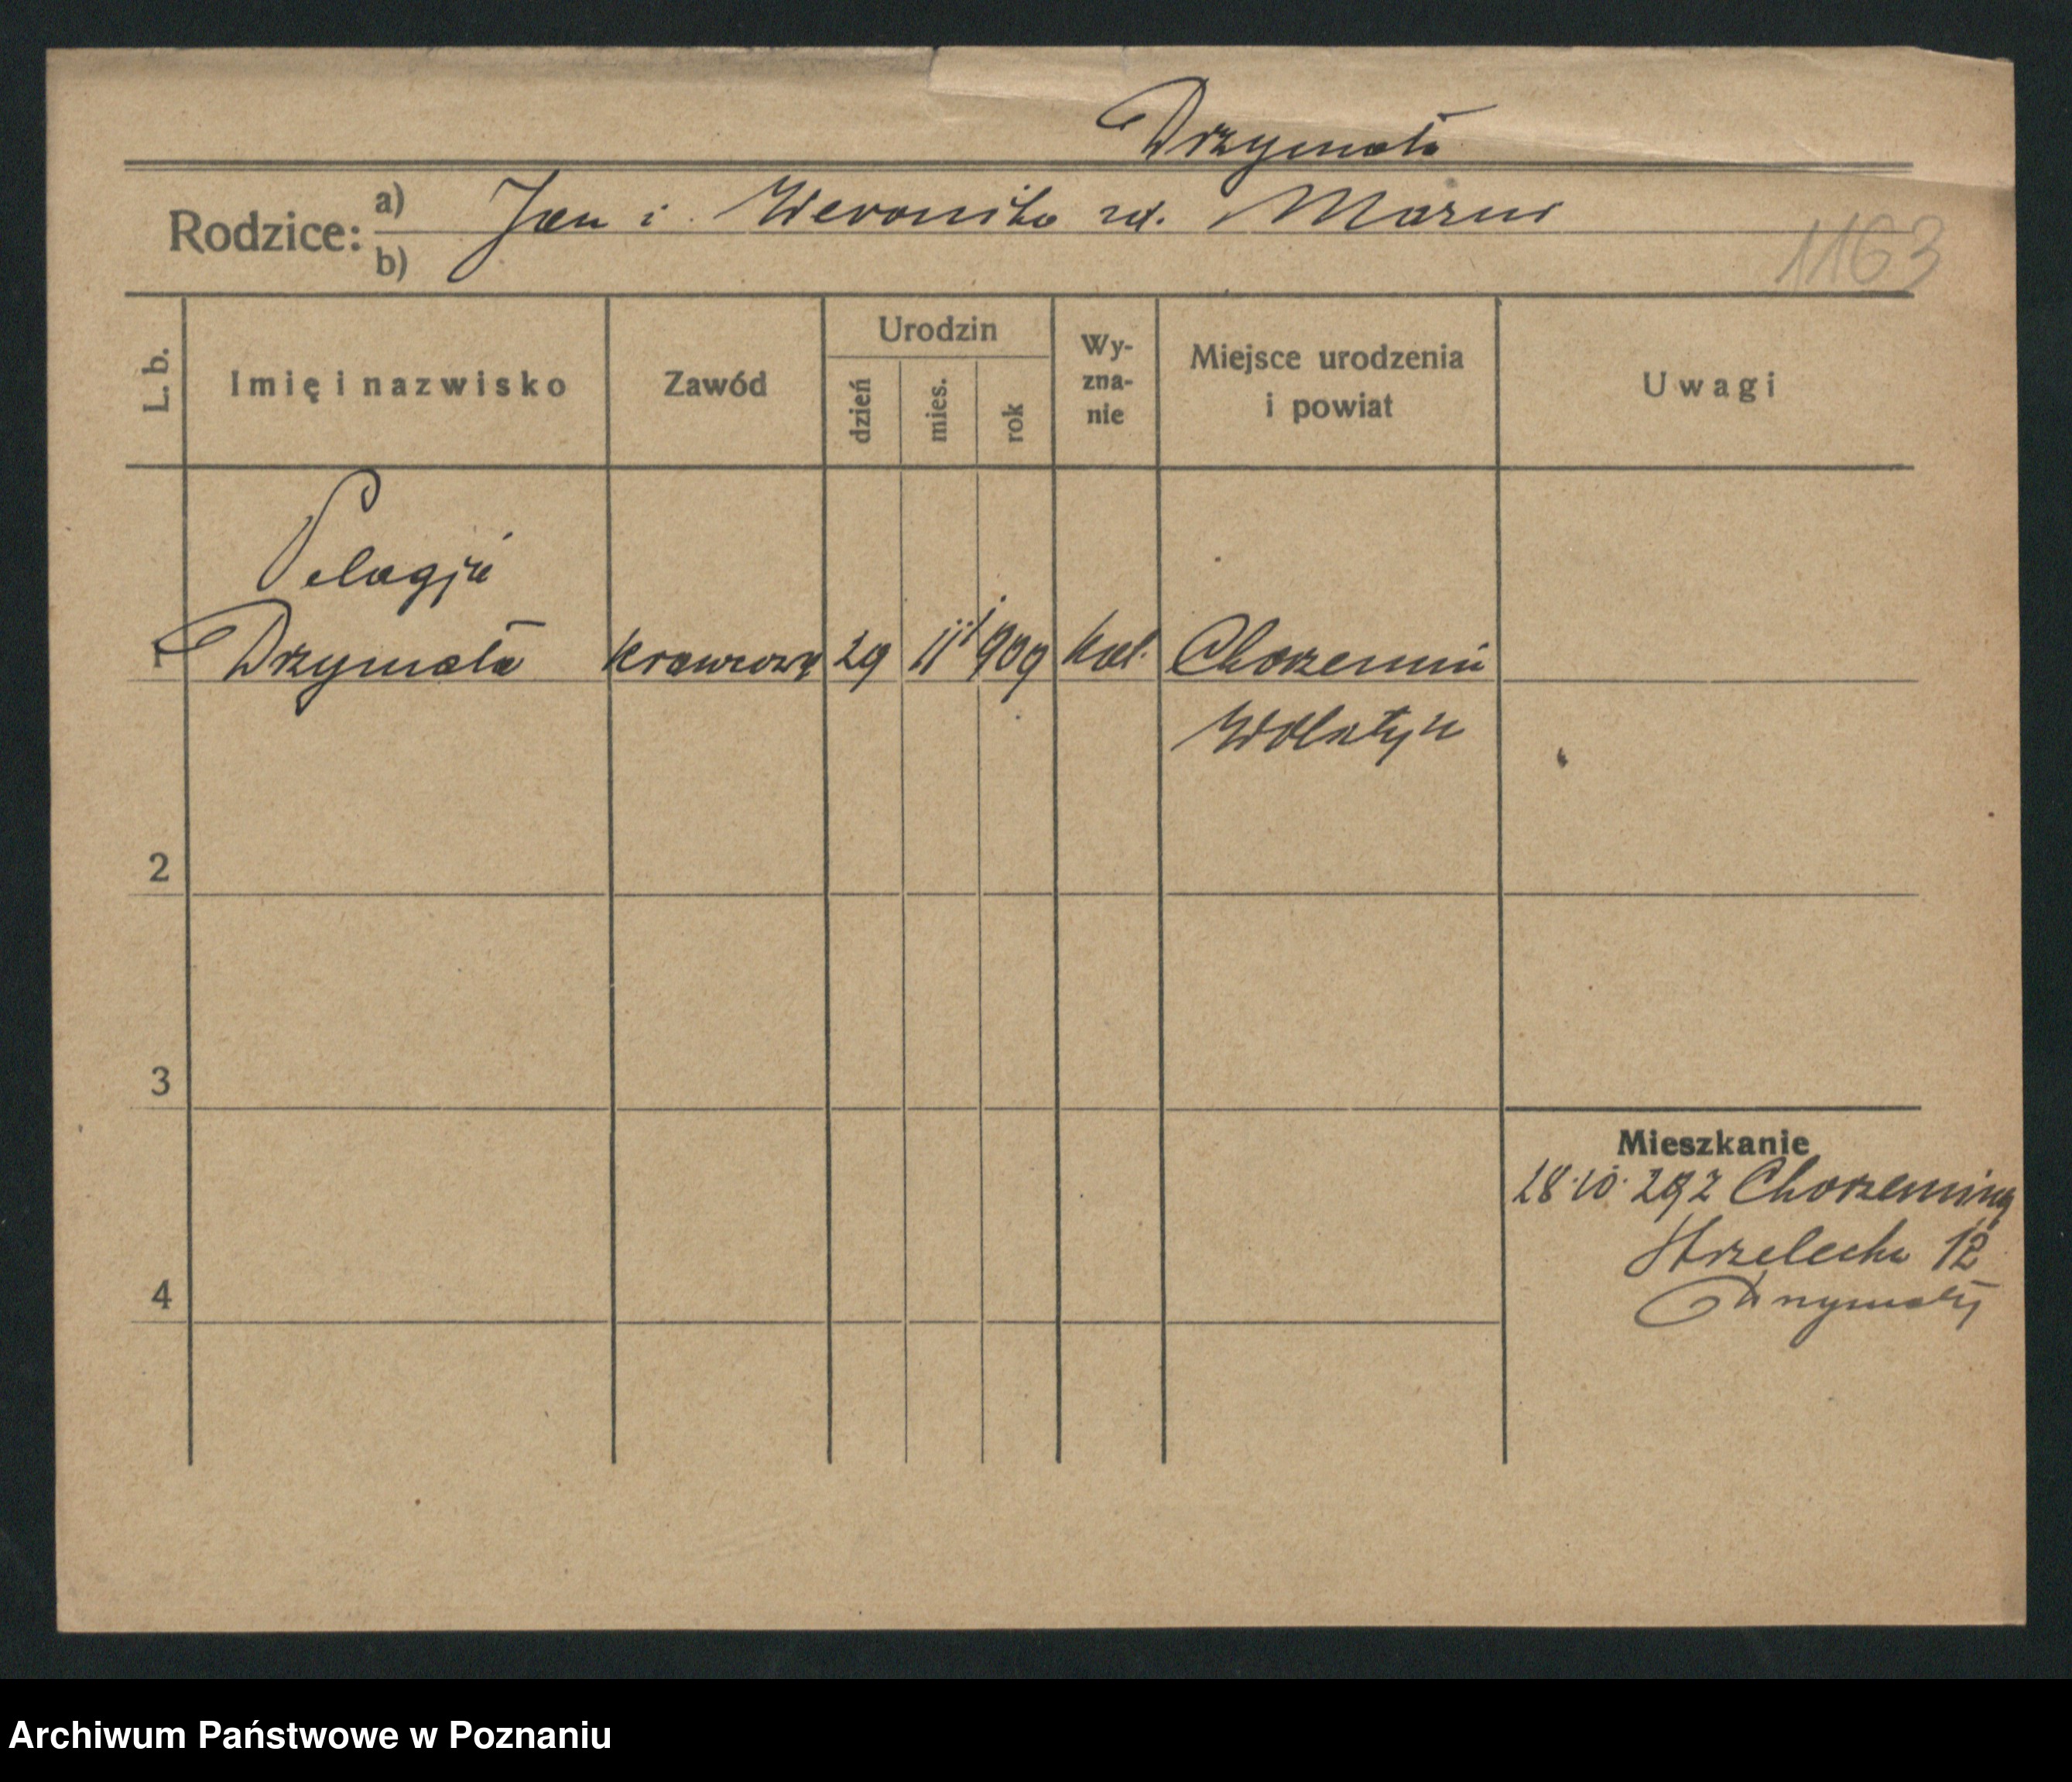 Drzymała
Rodzice: a) Jan i Weronika zd. Mazur
b)
1163
L. b.
Imię i nazwisko
Zawód
Urodzin
dzień
mies.
rok
Wy-
zna-
nie
Miejsce urodzenia
i powiat
Uwagi
Pelagja
1 Drzymała krawcową 29 11 909 kat. Chorzemin
Wolsztyn
2
3
4
Mieszkanie
28.10. 29 z Chorzemina
Strzelecka 12
Drzymały
Archiwum Państwowe w Poznaniu